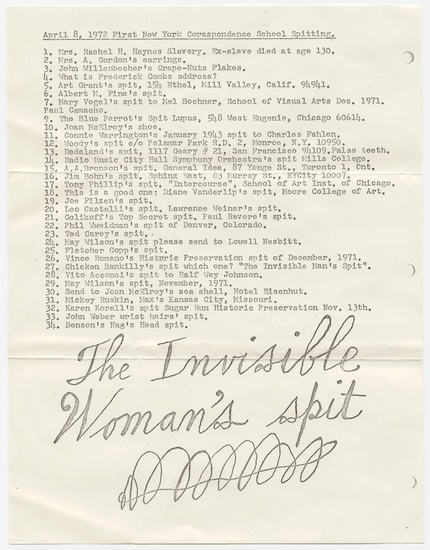 April 8, 1972 First New York Coraspondence School Spitting.
1. Mrs. Rachel H. Haynes Slavery. Ex-slave died at age 130.
2. Mrs. A. Gordon's earrings.
3. John Willenbecher's Grape-Nuts Flakes.
4. What is Frederick Combs address?
5. Art Grant's spit, 154 Ethel, Mill Valley, Calif. 94941.
6. Albert M. Fine's spit.
7. Mary Vogel's spit to Mel Bochner, School of Visual Arts Dec. 1971.
Paul Camacho.
9. The Blue Parrot's Spit Lupus, 548 West Eugenie, Chicago 60614.
10. Joan McElroy's shoe.
11. Connie Warrington's January 1943 spit to Charles Fahlen.
12. Woody's spit c/o Palamar Park R.D. 2, Monroe, N.Y. 10950.
13. Dadaland's spit, 1117 Geary # 21, San Francisco 94109.False teeth.
14. Radio Music City Hall Symphony Orchestra's spit Mills College.
15. A.A.Bronson's spit, General Idea, 87 Yonge St., Toronto 1, Ont.
16. Jim Bohn's spit, Sphinx East, 63 Murray St., NYCity 10007.
17. Tony Phillip's spit, "Intercourse", School of Art Inst. of Chicago.
18. This is a good one: Diane Vanderlip's spit, Moore College of Art.
19. Joe Filzen's spit.
20. Leo Castelli's spit. Lawrence Weiner's spit.
21. Golikoff's Top Secret spit. Paul Revere's spit.
22. Phil Vweidman's spit of Denver, Colorado.
23. Ted Carey's spit.
24. May Wilson's spit please send to Lowell Nesbitt.
25. Fletcher Copp's spit.
26. Vince Romano's Historic Preservation spit of December, 1971.
27. Chicken Bankilly's spit which one? "The Invisible Man's Spit".
28. Vito Acconci's spit to Half Wey Johnson.
29. May Wilson's spit, November, 1971.
30. Send to Joan McElroy's sea shell, Hotel Eisenhut.
31. Mickey Ruskin, Max's Kansas City, Missouri.
32. Karen Korell's spit Sugar Run Historic Preservation Nov. 13th.
33. John Weber wrist hairs' spit.
34. Benson's Hag's Head spit.
The Invisible
Woman's spit